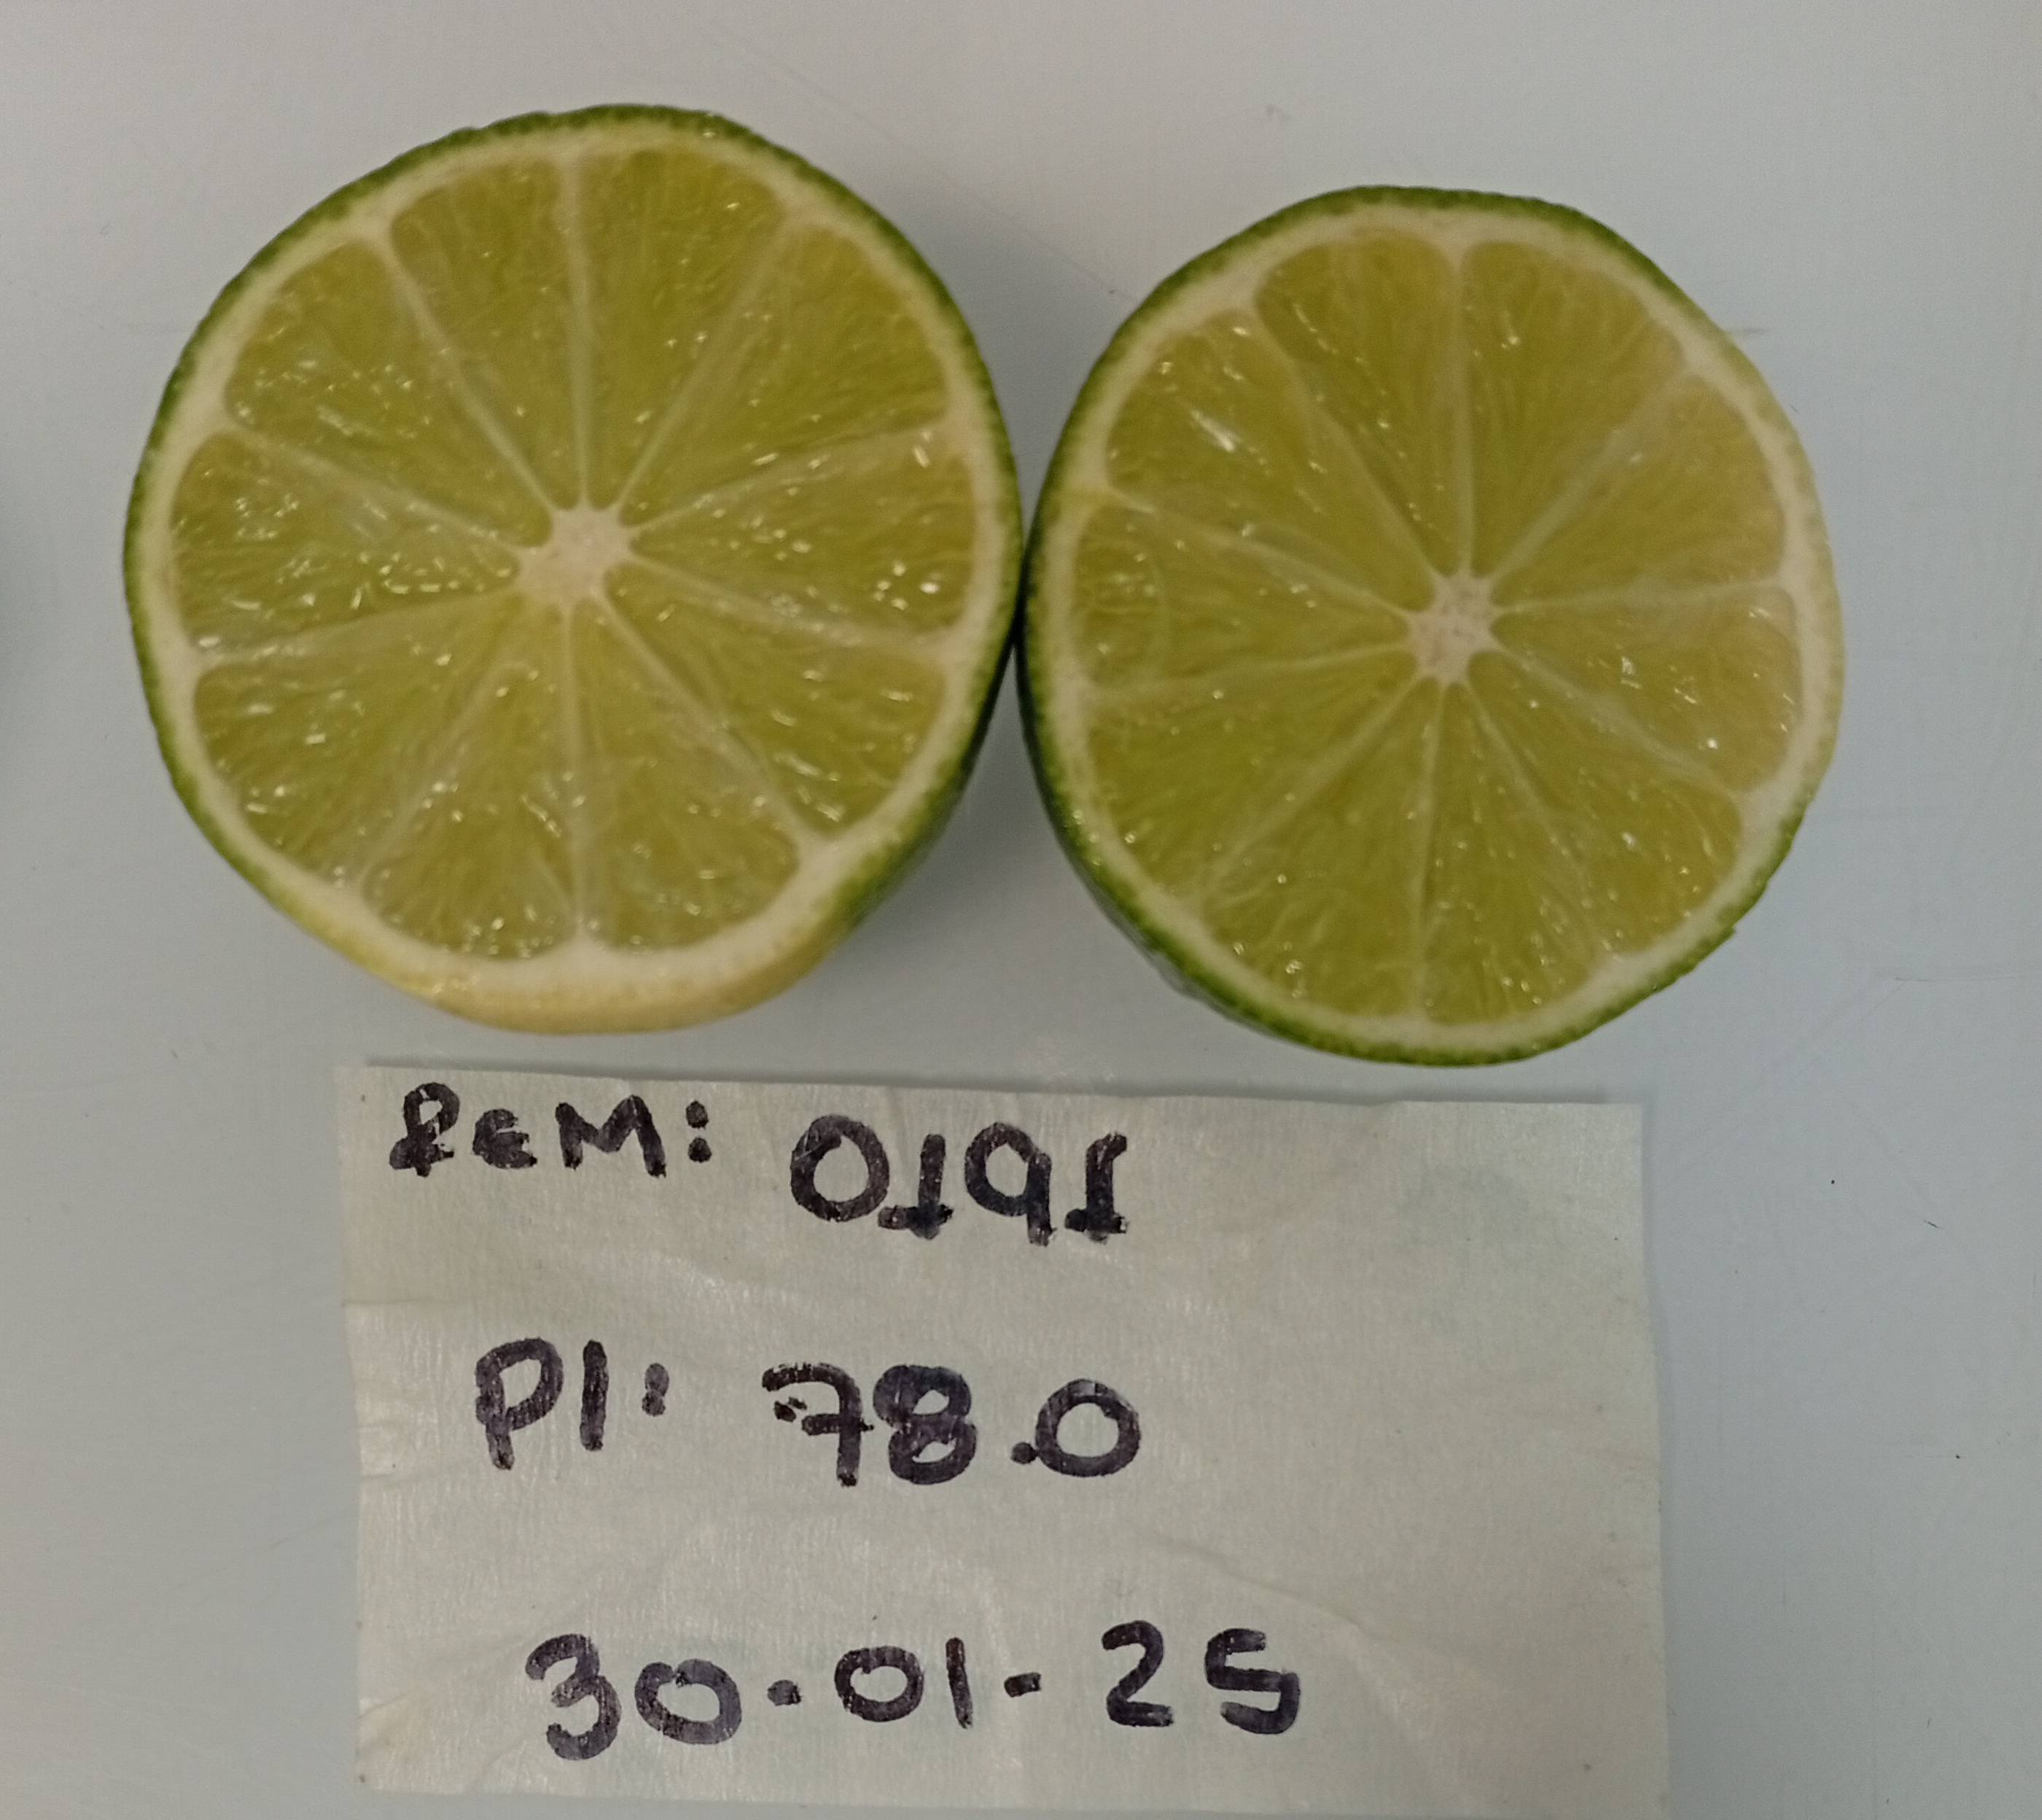 REM: 0191
PI: 78.0
30-01-25